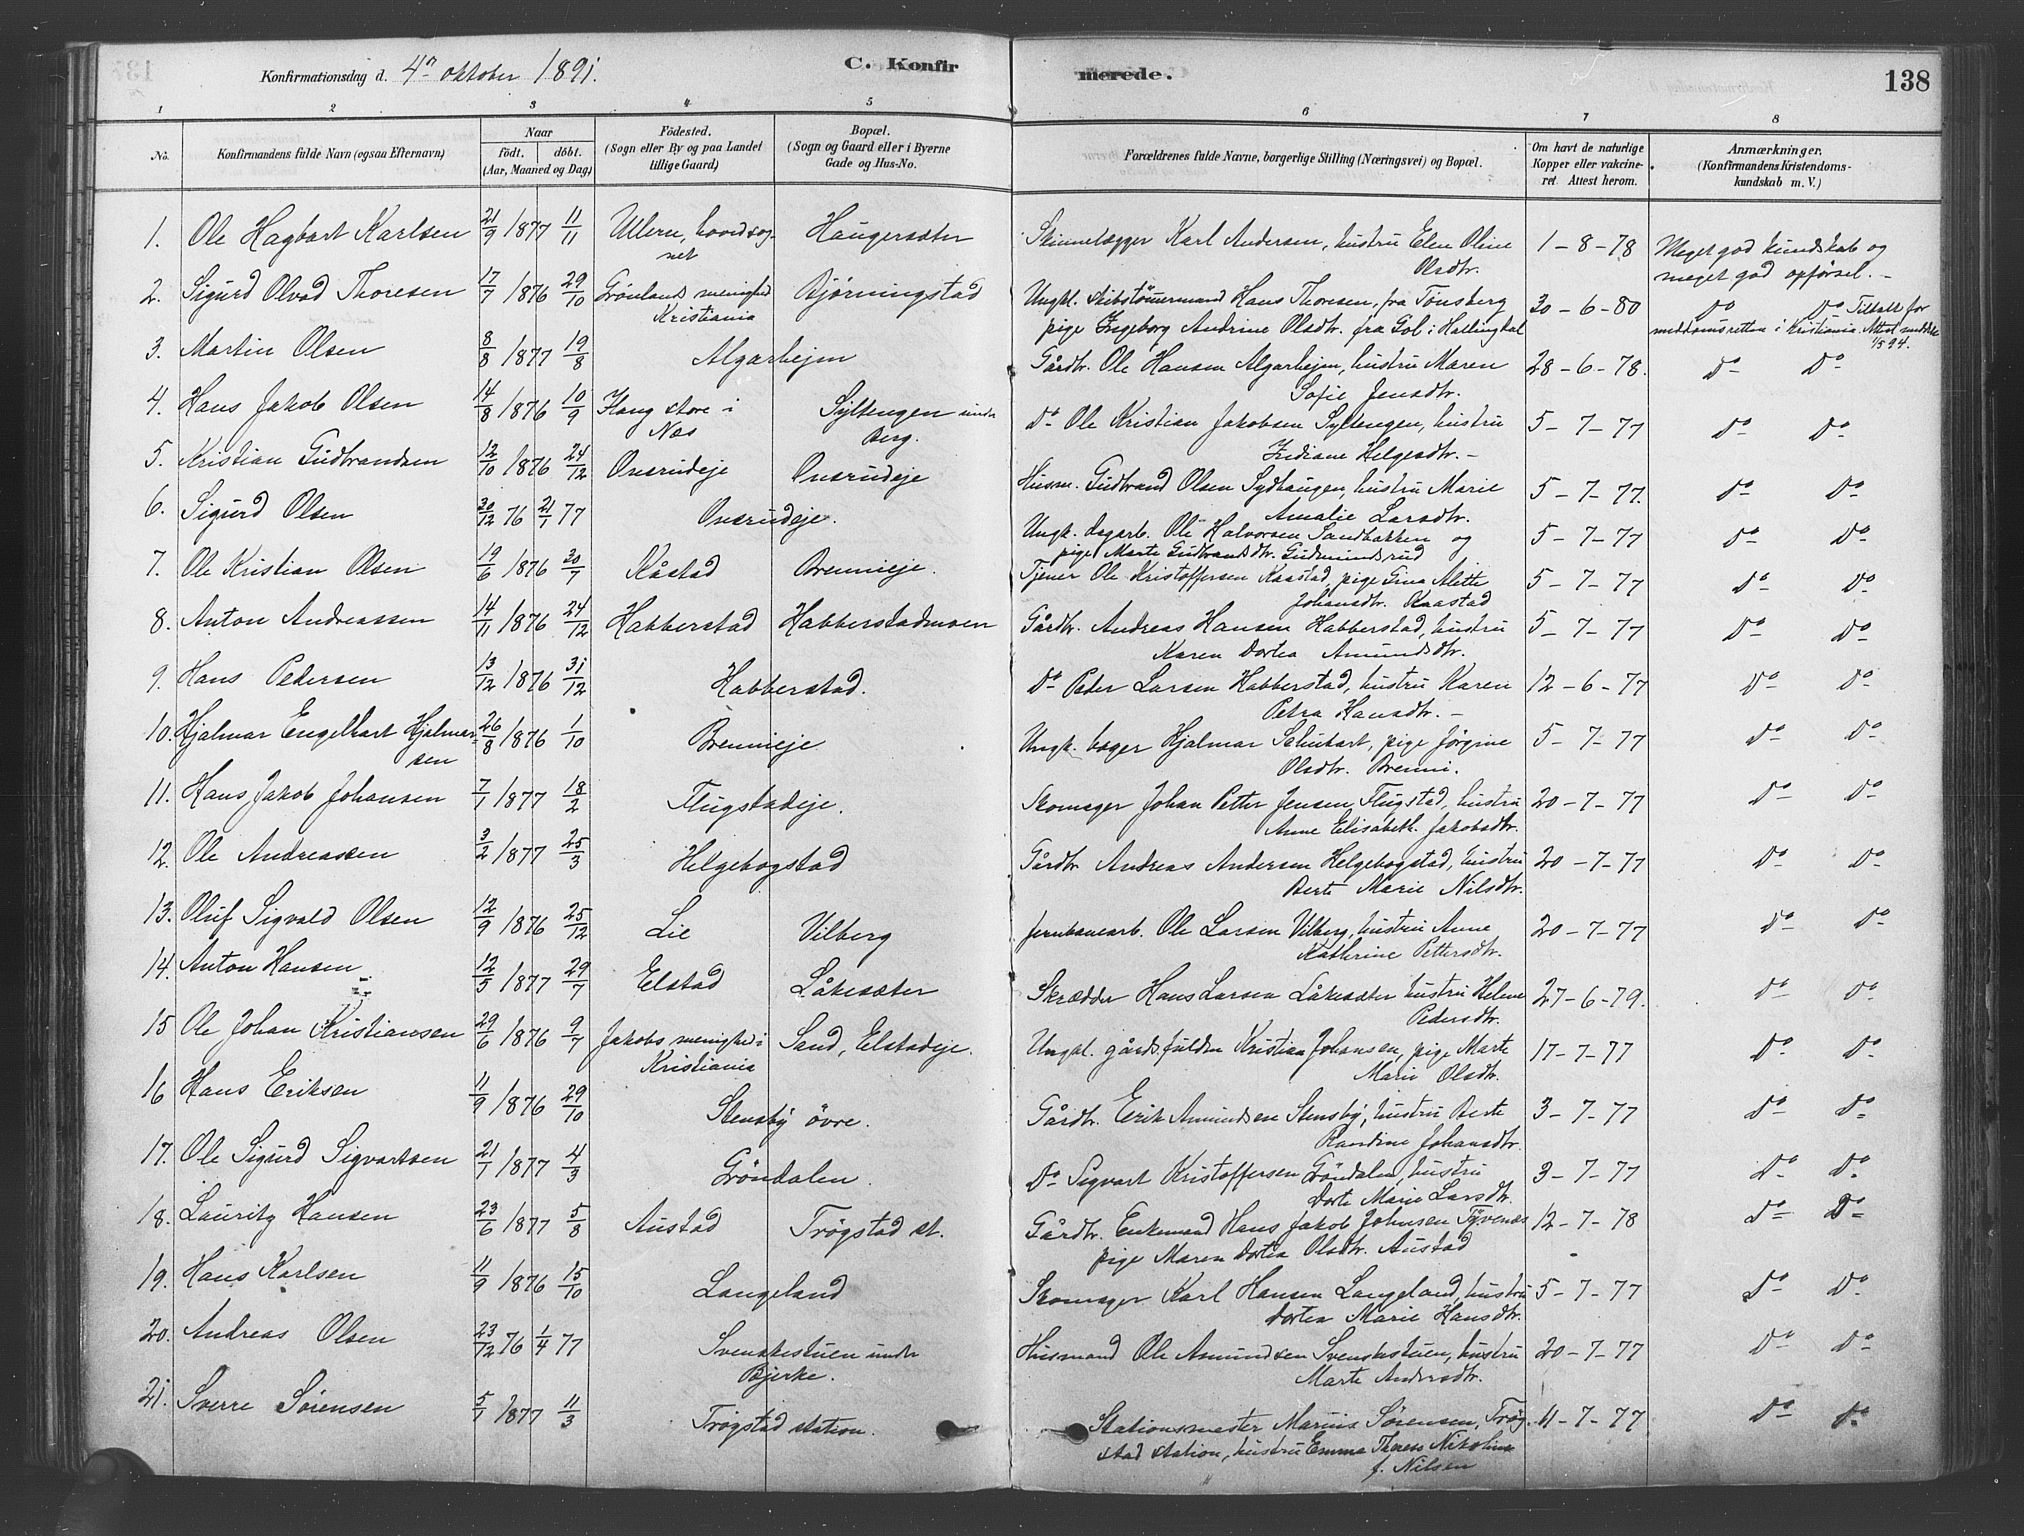 Konfirmationsdag d. 4de oktober 1891. C. Konfirmerede. 138
1 2 3 4 5 6 7 8
No. Konfirmandens fulde Navn (ogsaa Efternavn) Naar födt. döbt. (Aar, Maaned og Dag) Födested. (Sogn eller By og paa Landet tillige Gaard) Bopæl. (Sogn og Gaard eller i Byerne Gade og Hus-No. Forældrenes fulde Navne, borgerlige Stilling (Næringsvei) og Bopæl. Om havt de naturlige Kopper eller vakcineret. Attest herom. Anmærkninger. (Konfirmandens Kristendomskundskab m. V.)
1. Ole Hagbart Karlsen 21/9 1877 11/11 Ullern, hovedsognet Haugersæter Skinnelægger Karl Andersen, hustru Elen Oline Olsdtr. 1-8-78 Meget god kundskab og meget god opførsel. -
2. Sigurd Olvad Thoresen 17/7 1876 29/10 Grønlands menighed Kristiania Bjørningstad Ungkl. skibstømmermand Hans Thoresen, fra Tønsberg pige Ingeborg Andrine Olsdtr. fra Gol i Hallingdal 30-6-80 Do Do Tiltalt for meddomsretten i Kristiania. Attest meddelt 1/5 94.
3. Martin Olsen 8/8 1877 19/8 Algarhejm Gårdbr. Ole Hansen Algarhejm, hustru Maren Sofie Jensdtr. 28-6-78. Do Do
4. Hans Jakob Olsen 14/8 1876 10/9 Haug store i Nes Syltengen under Berg. Do Ole Kristian Jakobsen Syltengen, hustru Frediane Helgesdtr. - 5-7-77 Do Do
5. Kristian Gudbrandsen 12/10 1876 24/12 Onsrudeje Onsrudeje Husm. Gudbrand Olsen Sydhaugen, hustru Marie Amalie Larsdtr. 5-7-77. Do Do
6. Sigurd Olsen 30/12 76 21/1 77 Onsrudeje. Ungk. dagarb. Ole Halvorsen Sandbakken og pige Marte Gudbrandsdtr. Gudmundsrud 5-7-77 Do Do
7. Ole Kristian Olsen 19/6 1876 30/7 Kåstad Brennieje. Tjener Ole Kristoffersen Kaastad, pige Gina Alette Johansdtr. Kaastad 5-7-77 Do Do
8. Anton Andreassen 14/11 1876 24/12 Habberstad Habberstadmoen Gårdbr. Andreas Hansen Habberstad, hustru Karen Dortea Amundsdtr. 5-7-77 Do Do
9. Hans Pedersen 13/12 1876 31/12 Habberstad. Do Peder Larsen Habberstad, hustru Karen Petra Hansdtr. - 12-6-77 Do Do
10. Hjalmar Engelhart Hjalmarsen 26/8 1876 1/10 Brennieje Ungk. bager Hjalmar Schubart, pige Jørgine Olsdtr. Brenni. 5-7-77 Do Do
11. Hans Jakob Johansen 7/1 1877 18/2 Flugstadeje. Skomager Johan Petter Jensen Flugstad, hustru Anne Elisabeth. Jakobsdtr. 20-7-77 Do Do
12. Ole Andreassen 3/2 1877 25/3 Helgebogstad Gårdbr Andreas Andersen Helgebogstad, hustru Berte Marie Nilsdtr. 20-7-77 Do Do
13. Oluf Sigvald Olsen 12/9 1876 25/12 Lie Vilberg Jernbanearb. Ole Larsen Vilberg, hustru Anne Kathrine Pettersdtr. 20-7-77 Do Do
14. Anton Hansen 12/5 1877 29/7 Elstad Låkesæter Skrædder Hans Larsen Låkesæter hustru Helene Pedersdtr. 27-6-79. Do Do
15 Ole Johan Kristiansen 29/6 1876 9/7 Jakobs menighed i Kristiania Sand, Elstadeje. Ungkl. gårdsfuldm Kristian Johansen, pige Marte Marie Olsdtr. 17-7-77 Do Do
16 Hans Eriksen 11/9 1876 29/10 Stensby övre. Gårdbr. Erik Amundsen Stensby, hustru Berte Randine Johansdtr. 3-7-77 Do Do
17. Ole Sigurd Sigvartsen 21/1 1877 4/3 Gröndalen. Do Sigvart Kristoffersen Gröndalen, hustru Dorte Marie Larsdtr. 3-7-77 Do Do
18. Lauritz Hansen 23/6 1877 5/8 Austad Trögstad st. Gårdbr. Enkemand Hans Jakob Johnsen Tyvenæs pige Maren Dortea Olsdtr. Austad 12-7-78 Do Do
19. Hans Karlsen 11/9 1876 15/10 Langeland Skomager Karl Hansen Langeland, hustru Dortea Marie Hansdtr. 5-7-77 Do Do
20. Andreas Olsen 23/12 76 1/4 77 Svenskestuen under Bjerke. Husmand Ole Amundsen Svenskstuen, hustru Marte Andersdtr. 20-7-77 Do Do
21. Sverre Sörensen 5/1 1877 11/3 Trögstad station. Stationsmester Marius Sörensen, Trögstad station, hustru Emma Therese Nikoline f. Nilsen 11-7-77 Do Do